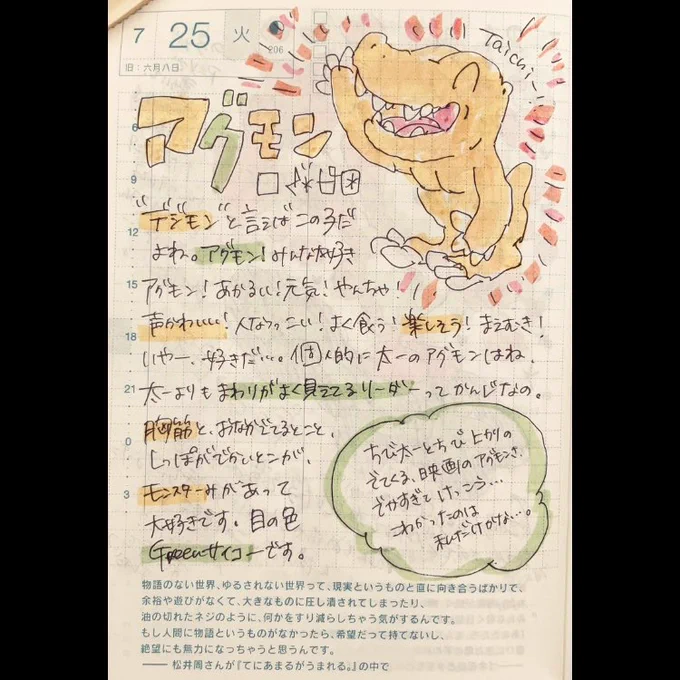 7 25 火
206
旧:六月八日
Taichi―!
アグモン
"デジモン"と言えばこの子だ
よね。アグモン!みんな大好き
アグモン!あかるい!元気!やんちゃ!
声かわいい!人なつっこい!よく食う!楽しそう!まえむき!
いやー、好きだ…。個人的に太一のアグモンはね、
太一よりもまわりがよく見えてるリーダーってかんじなの。
胸筋と、おなかがでてるとこと、
しっぽがでかいとこが、
モンスターみがあって
大好きです。目の色
Greenサイコーです。
ちび太一とちび上かりの
でてくる、映画のアグモンさ、
でかすぎてけっこう…
こわかったのは
私だけかな…。
9
12
15
18
21
0
3
物語のない世界、ゆるされない世界って、現実というものと直に向き合うばかりで、
余裕や遊びがなくて、大きなものに圧し潰されてしまったり、
油の切れたネジのように、何かをすり減らしちゃう気がするんです。
もし人間に物語というものがなかったら、希望だって持てないし、
絶望にも無力になっちゃうと思うんです。
―― 松井周さんが『てにあまるがうまれる。』の中で